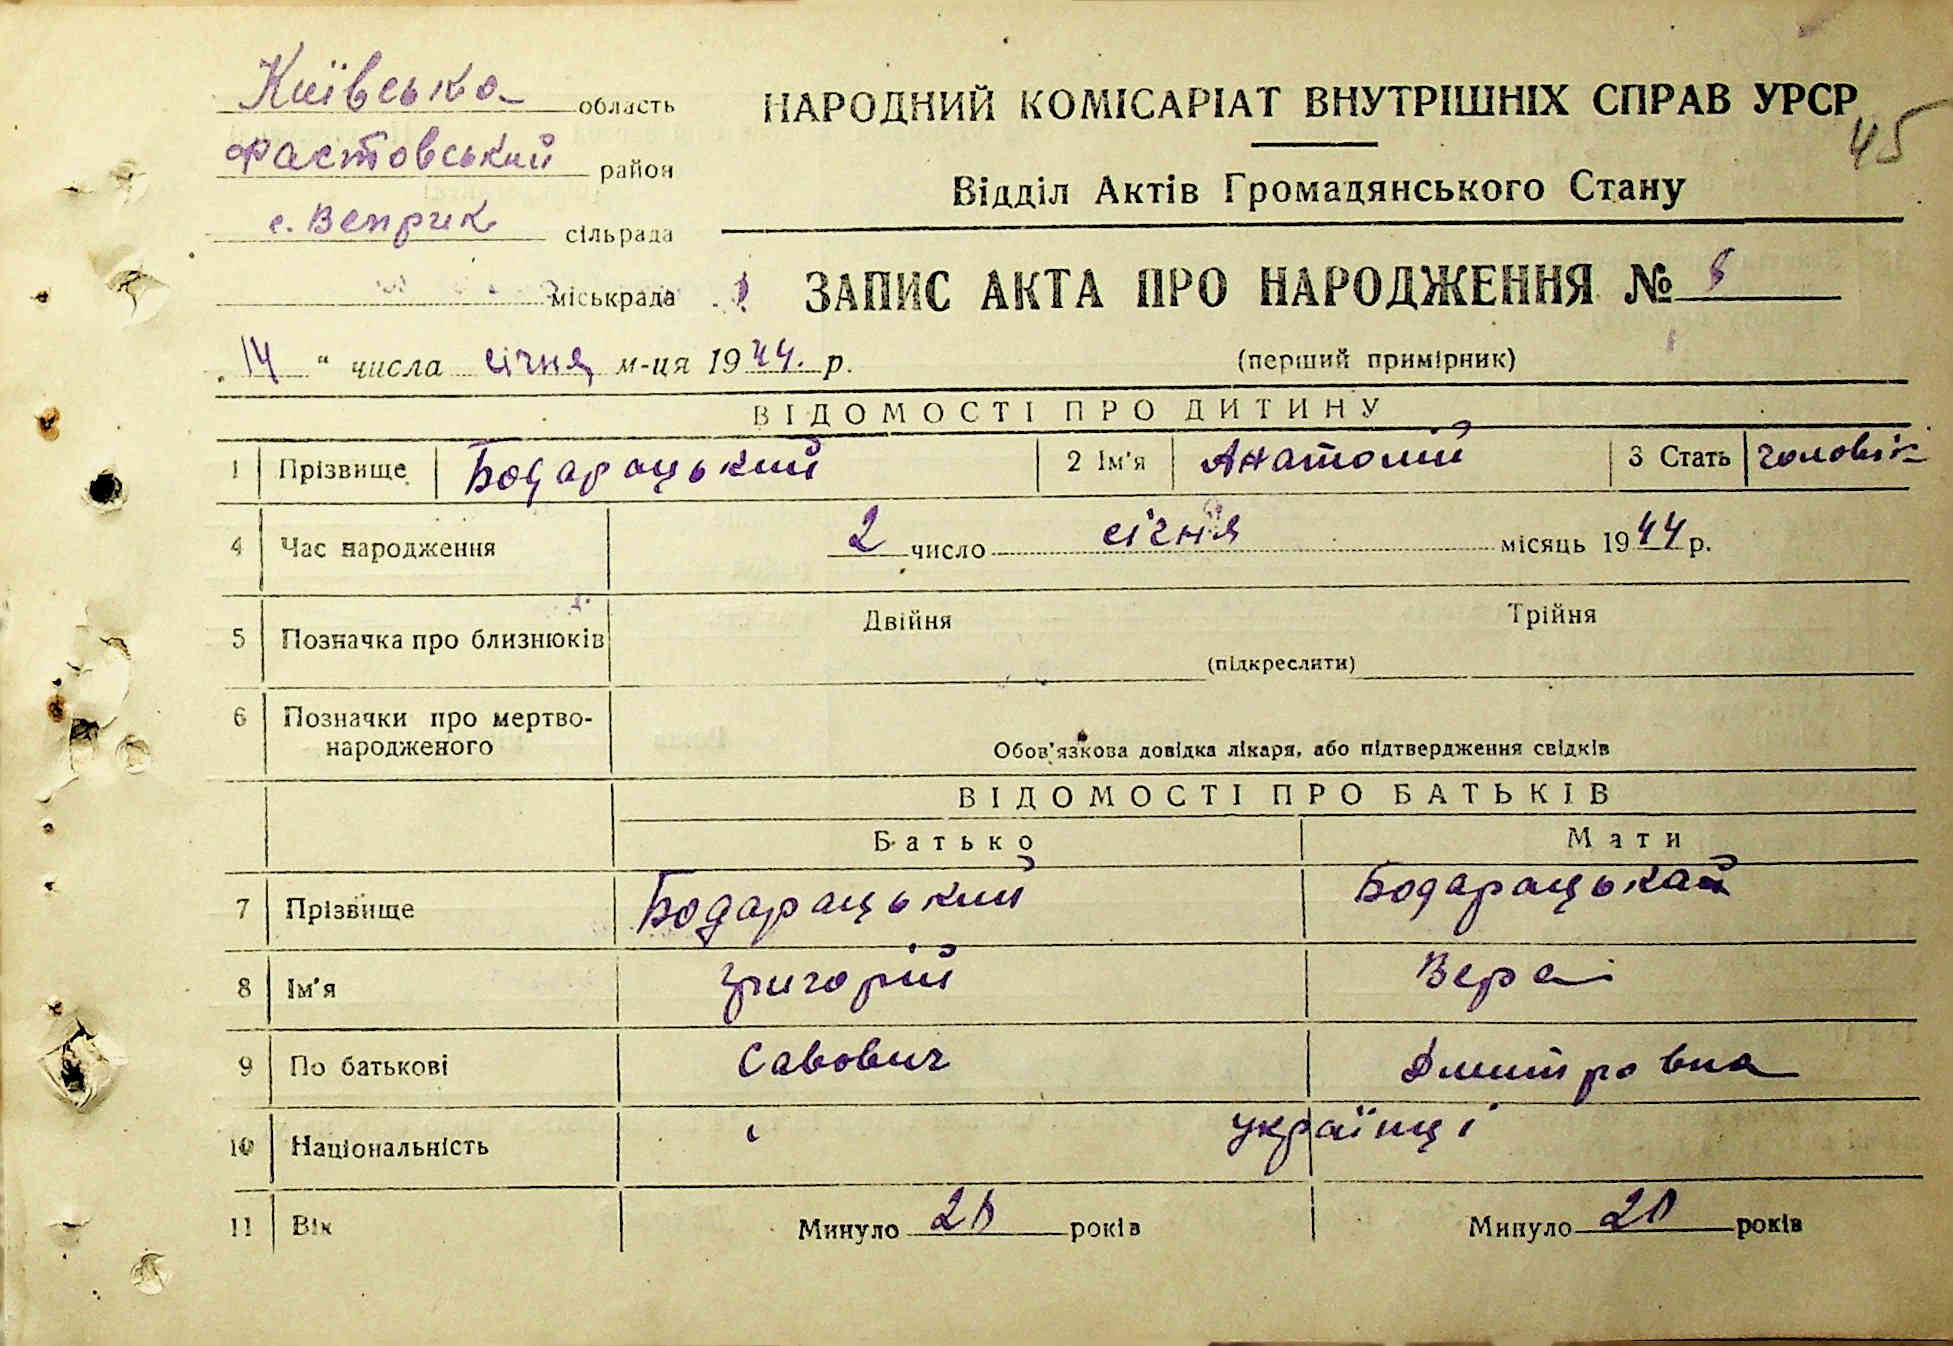 Київська область
Фастовський район
с. Веприк сільрада
міськрада
НАРОДНИЙ КОМІСАРІАТ ВНУТРІШНІХ СПРАВ УРСР
45
Відділ Актів Громадянського Стану
ЗАПИС АКТА ПРО НАРОДЖЕННЯ № 8
„14“ числа січня м-ця 1944. р.
(перший примірник)
ВІДОМОСТІ ПРО ДИТИНУ
1 Прізвище Бодарацький 2 Ім'я Анатолій 3 Стать чоловік
4 Час народження 2 число січня місяць 1944 р.
5 Позначка про близнюків Двійня Трійня
(підкреслити)
6 Позначки про мертво-
народженого Обов'язкова довідка лікаря, або підтвердження свідків
ВІДОМОСТІ ПРО БАТЬКІВ
Батько Мати
7 Прізвище Бодарацький Бодарацькая
8 Ім'я Григорій Вера
9 По батькові Савович Дмитровна
10 Національність українці
11 Вік Минуло 20 років Минуло 20 років